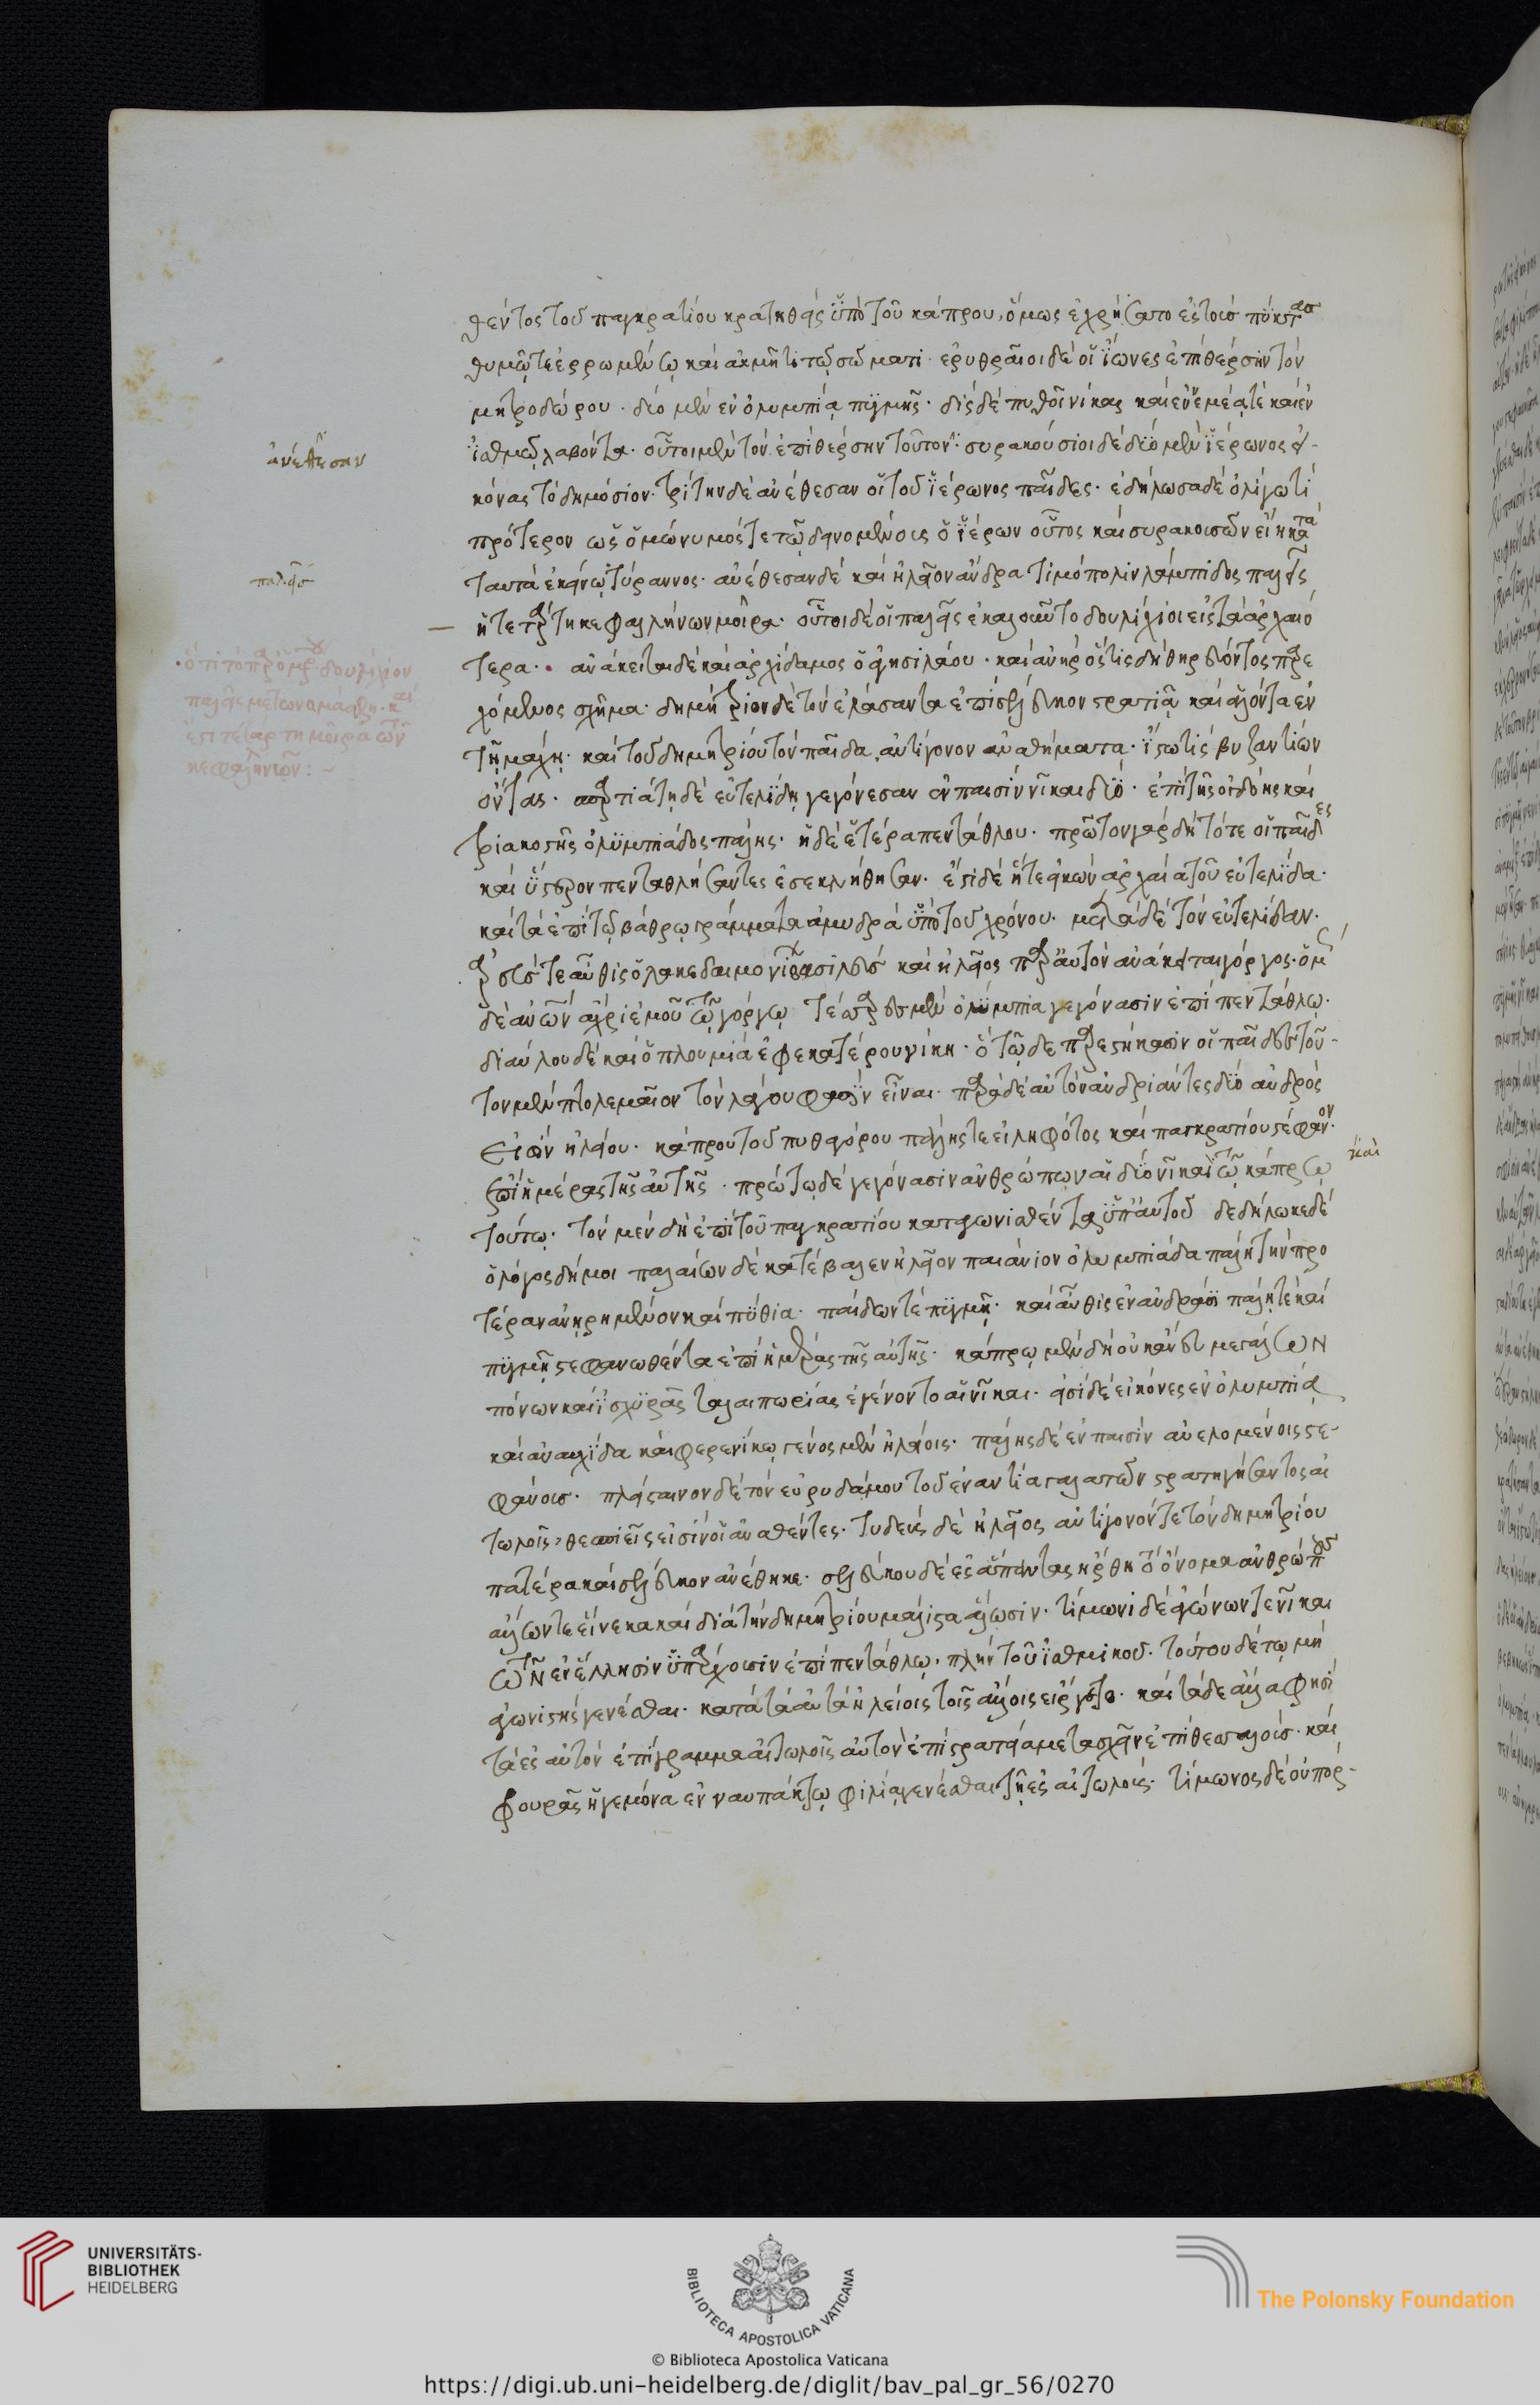 θέντος τοῦ παγκρατίου κρατηθεὶς ὑπὸ τοῦ κάπρου, ὅμως ἐχρήσατο ἐς τοὺσ πύκτασ
θυμῶ τε ἐρρωμένω καὶ ἀκμῆτι τῶ σώματι· ἐρυθραῖοι δὲ οἱ ἴωνες ἐπιθέρσην τὸν
μητροδώρου· δύο μὲν ἐν ὀλυμπία πυγμῆς· δὶς δὲ πυθοῖ νίκας καὶ ἐν νεμέα τε καὶ ἐν
ἰσθμῶ λαβόντα· οὗτοι μὲν τὸν ἐπιθέρσην τοῦτον· συρακούσιοι δὲ δύο μὲν ἱέρωνος εἰ-
κόνας τὸ δημόσιον· τρίτην δὲ ἀνέθεσαν οἱ τοῦ ἱέρωνος παῖδες· ἐδήλωσα δὲ ὀλίγω τι
πρότερον ὡς ὁμώνυμός τε τῶ δεινομένους ὁ ἱέρων οὗτος καὶ συρακουσῶν εἴη κατὰ
ταυτὰ ἐκείνω τύραννος· ἀνέθεσαν δὲ καὶ ἠλεῖον ἄνδρα τιμόπολιν λάμπιδος παλεῖς
ἡ τετάρτη κεφαλλήνων μοῖρα· οὗτοι δὲ οἱ παλεῖς ἐκαλοῦντο δουλίχιοι εἰς τὰ ἀρχαιό
τερα· ἀνάκειται δὲ καὶ ἀρχίδαμος ὁ ἀγησιλάου· καὶ ἀνὴρ ὅστις δὴ θηρεύοντος παρε
χόμενος σχῆμα· δημήτριον δὲ τὸν ἐλάσαντα ἐπὶ σέλευκον στρατιᾶ καὶ ἁλόντα ἐν
τῆ μάχη· καὶ τοῦ δημητρίου τὸν παῖδα ἀντίγονον ἀναθήματα· ἴστω τὶς βυζαντίων
ὄντας· σπαρτιάτη δὲ εὐτελίδη γεγόνεσαν ἐν παισὶν νῖκαι δύο· ἐπὶ τῆς ὀγδόης καὶ
τριακοστῆς ὀλυμπιάδος πάλης· ἡ δὲ ἑτέρα πεντάθλου· πρῶτον γὰρ δὴ τότε οἱ παῖδες
καὶ ὕστερον πενταθλήσαντες ἐσεκλήθησαν· ἔστι δὲ ἥ τε εἰκὼν ἀρχαία τοῦ εὐτελίδα·
καὶ τὰ ἐπὶ τῶ βάθρω γράμματα ἀμυδρὰ ὑπὸ τοῦ χρόνου· μετὰ δὲ τὸν εὐτελίδαν·
ἄρευς τε αὖθις ὁ λακεδαιμονίων βασιλεὺσ καὶ ἠλεῖος παρ' αὐτὸν ἀνάκειται γόργος· μόν
δὲ ἀνθρώπων ἄχρι ἐμοῦ τῶ γόργω τέσσαρες μὲν ὀλυμπία γεγόνασιν ἐπὶ πεντάθλω·
διαύλου δὲ καὶ ὅπλου μία ἐφ' ἑκατέρου νίκη· ὅτω δε παρεστήκασιν οἱ παῖδεσ τοῦ-
τον μὲν πτολεμαῖον τὸν λάγου φασὶν εἶναι· παρὰ δὲ αὐτὸν ἀνδριάντες δύο ἀνδρός
εἰσὶν ἠλείου· κάπρου τοῦ πυθαγόρου πάλης τε εἰληφότος καὶ παγκρατίου στέφανον·
ἐπὶ ἡμέρας τῆς αὐτῆς· πρώτω δὲ γεγόνασιν ἀνθρώπων αἱ δύο νῖκαι τῶ κάπρω
τούτω· τὸν μὲν δὴ ἐπὶ τοῦ παγκρατίου καταγωνισθέντα ὑπ' αὐτοῦ δεδήλωκε δὲ
ὁ λόγος δή μοι παλαίων δὲ κατέβαλεν ἠλεῖον παιάνιον ὀλυμπιάδα πάλη τὴν προ
τέραν ἀνηρημένον καὶ πύθια· παίδων τὲ πυγμῆ· καὶ αὖθις ἐν ἀνδράσι πάλη τὲ καὶ
πυγμῆ στεφανωθέντα ἐπὶ ἡμέρας τῆς αὐτῆς· κάπρω μὲν δὴ οὐκ ἄνευ μεγάλων
πόνων καὶ ἰσχυρᾶς ταλαιπωρίας ἐγένοντο αἱ νῖκαι· εἰσὶ δὲ εἰκόνες ἐν ὀλυμπία
καὶ ἀναυχίδα καὶ φερενίκω γένος μὲν ἠλείοις· πάλης δὲ ἐν παισὶν ἀνελομένοις στε-
φάνουσ· πλείσταινον δὲ τὸν εὐρυδάμου τοῦ ἐναντία γαλατῶν στρατηγήσαντος αἰ
τωλοῖς, θεσπιεῖς εἰσὶν οἱ ἀναθέντες· τυδεὺς δὲ ἠλεῖος ἀντίγονόν τε τὸν δημητρίου
πατέρα καὶ σέλευκον ἀνέθηκε· σελεύκου δὲ ἐς ἅπαντας ἤρθη τὸ ὄνομα ἀνθρώπους
ἄλλων τε εἵνεκα καὶ διὰ τὴν δημητρίου μάλιστα ἅλωσιν· τίμωνι δὲ ἀγώνων τε νῖκαι
τῶν ἐν ἕλλησιν ὑπάρχουσιν ἐπὶ πεντάθλω· πλὴν τοῦ ἰσθμικοῦ· τούτου δὲ τω μὴ
ἀγωνιστὴς γενέσθαι· κατὰ τὰ αὐτὰ ἠλείοις τοῖς ἄλλοις εἴργετο· καὶ τάδε ἄλλα φησὶ
τὰ ἐς αὐτὸν ἐπίγραμμα αἰτωλοῖς αὐτὸν ἐπιστρατείας μετασχεῖν ἐπὶ θεσσαλοὺσ· καὶ
φρουρᾶς ἡγεμόνα ἐν ναυπάκτω φιλία γενέσθαι τῆ ἐς αἰτωλούς· τίμωνος δὲ οὐ πόρ-
ἀνέθεσαν
παλεῖσ
ὅτι τὸ παρ' ὁμήρου δουλίχιον
παλεῖς μετωνομάσθη· καὶ
ἔστι τετάρτη μοῖρα τῶν
κεφαλήνων:~
καὶ
UNIVERSITÄTS-
BIBLIOTHEK
HEIDELBERG
BIBLIOTECA APOSTOLICA VATICANA
The Polonsky Foundation
© Biblioteca Apostolica Vaticana
https://digi.ub.uni-heidelberg.de/diglit/bav_pal_gr_56/0270